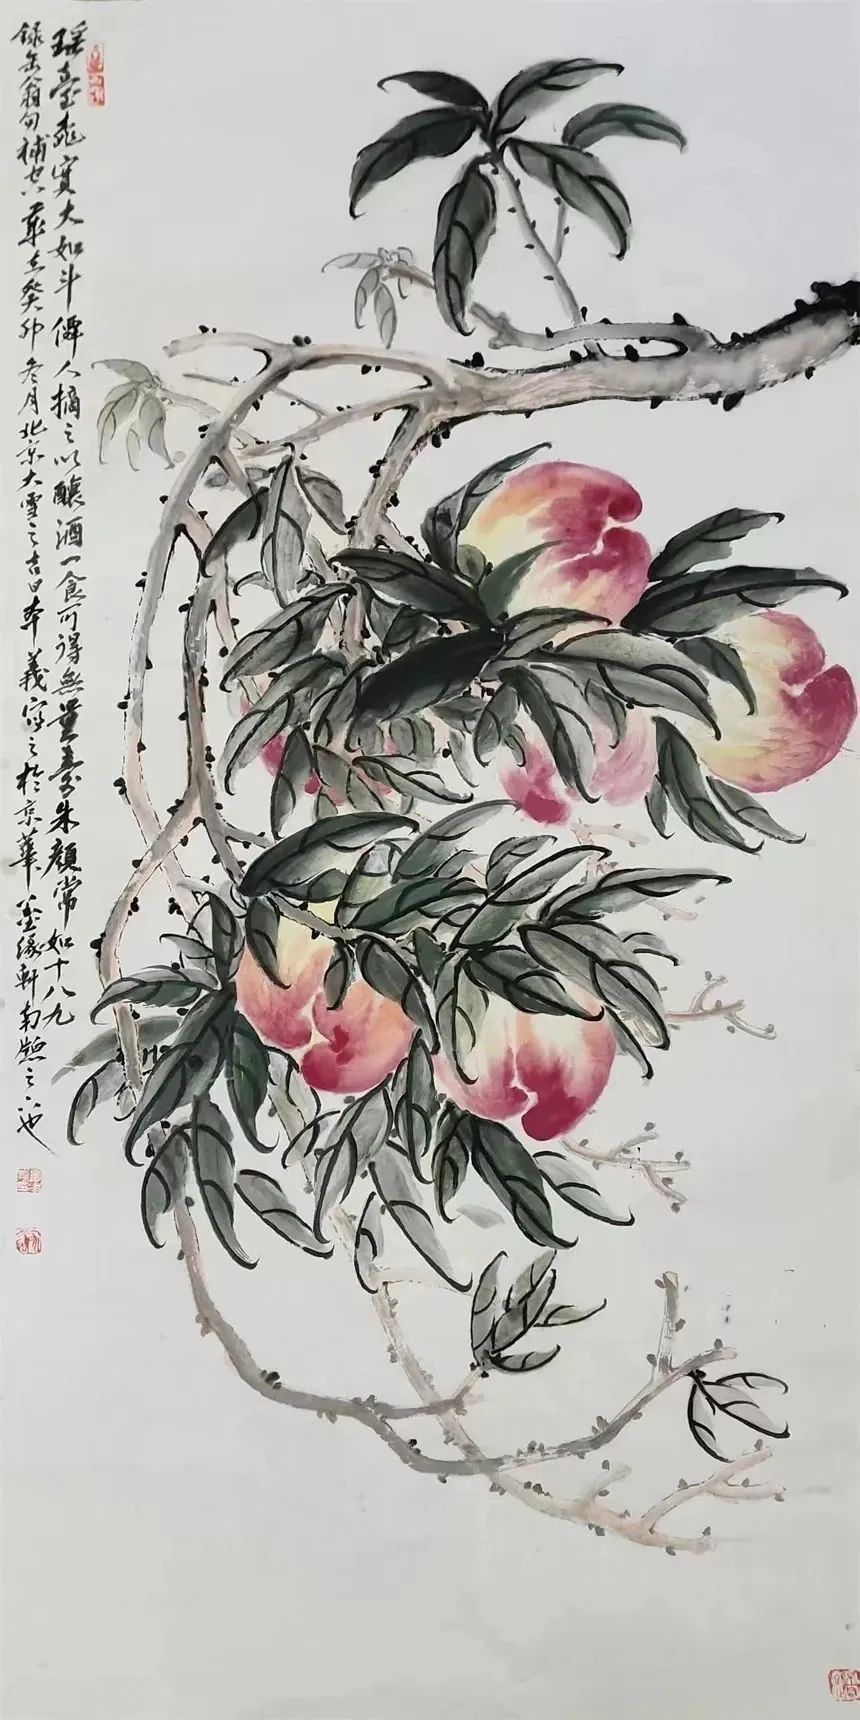 瑶臺桃實大如斗僊人摘之以釀酒一食可得無量壽朱顏常如十八九
録缶翁句補空歲在癸卯冬月北京大雪之吉日本義寫之於京華墨緣軒南牕之下也